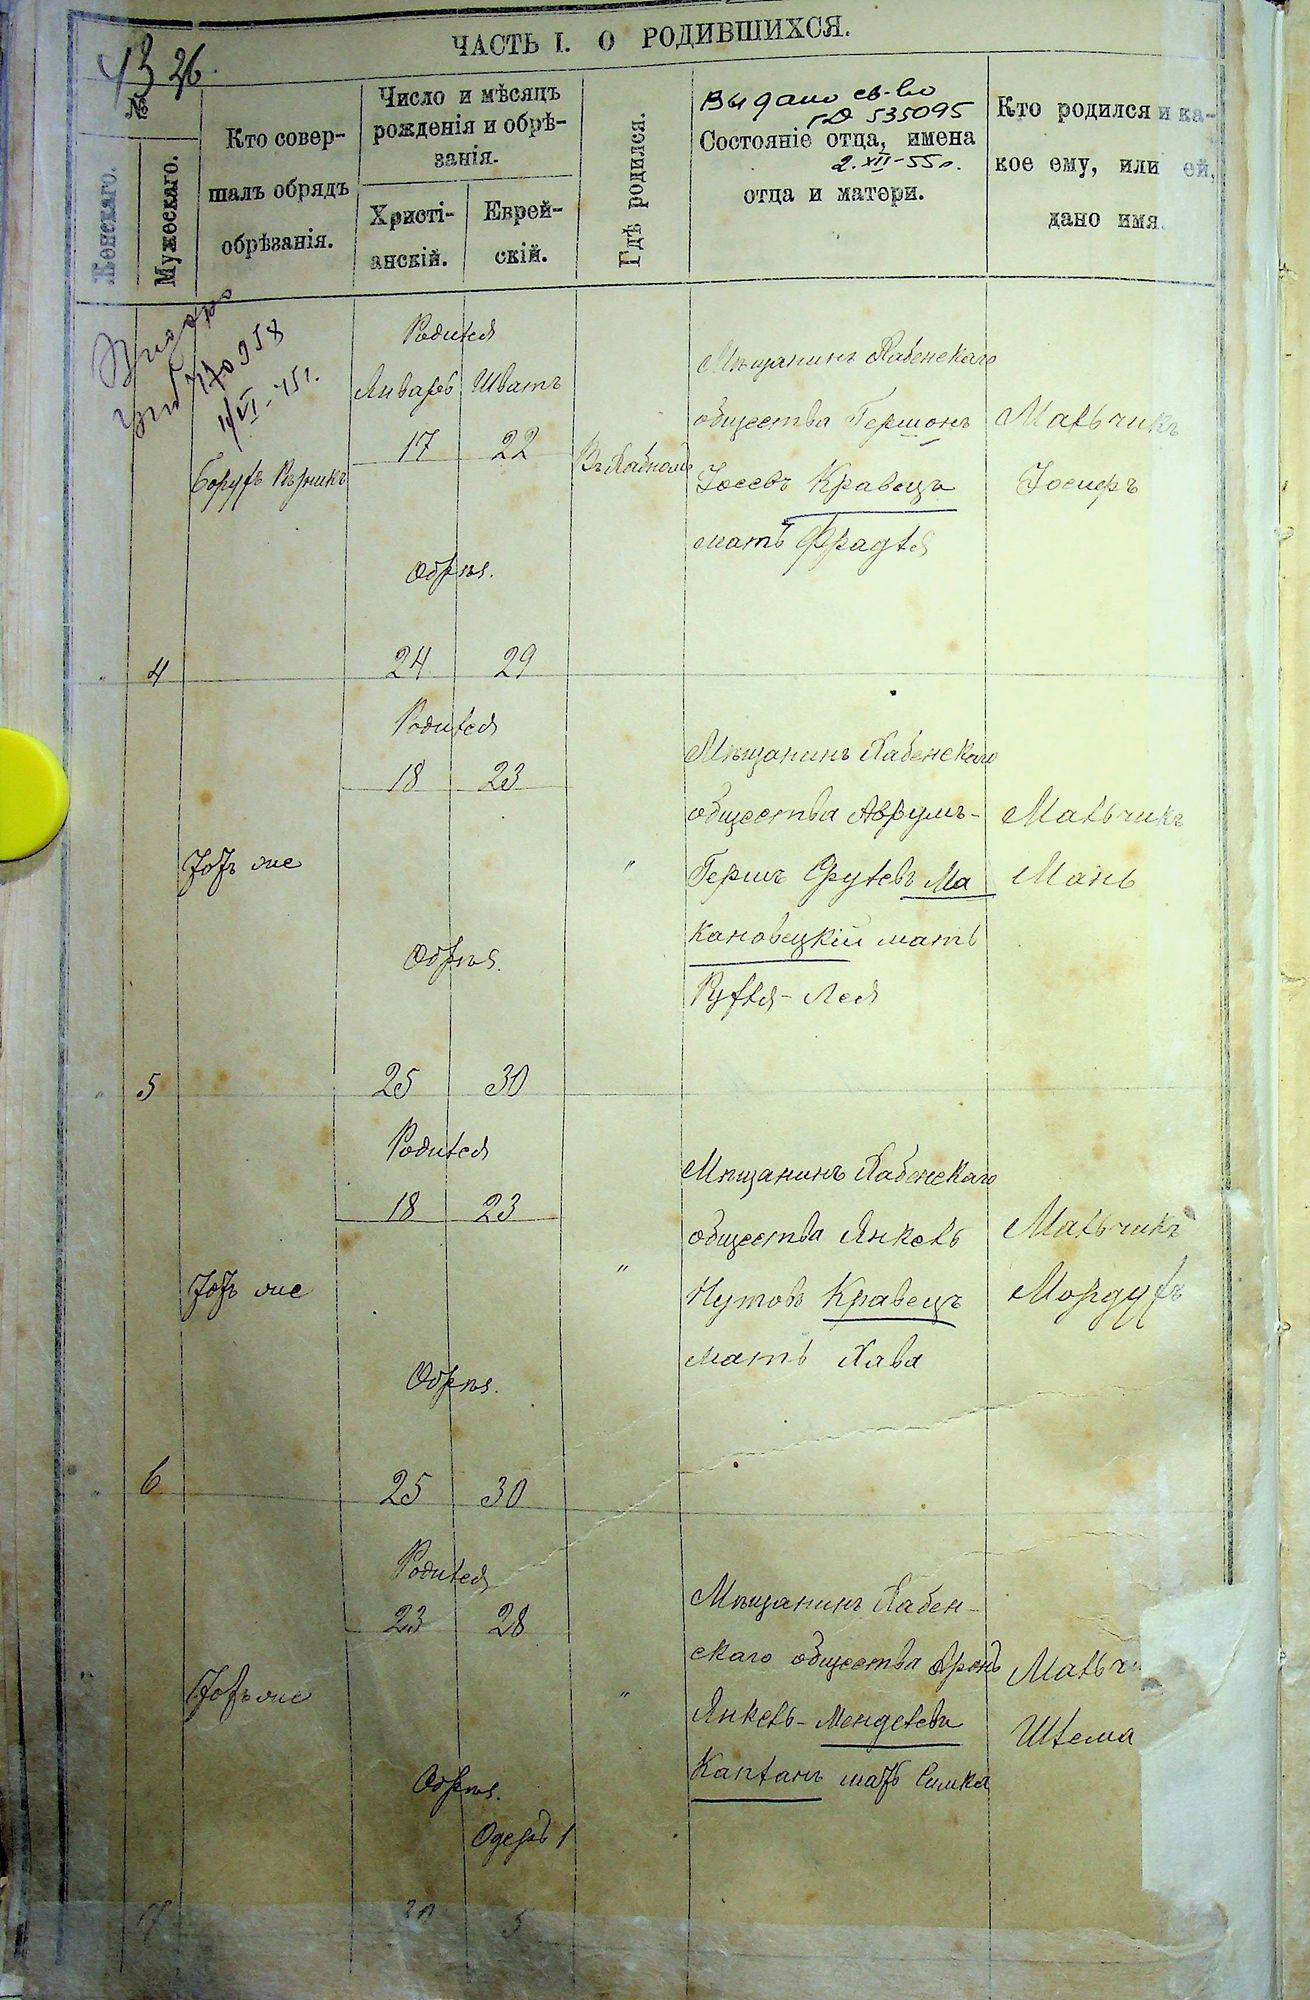 43 26.
ЧАСТЬ I. О РОДИВШИХСЯ.
№
Женскаго.
Мужескаго.
Кто совер-
шалъ обрядъ
обрѣзанія.
Число и мѣсяцъ
рожденія и обрѣ-
занія.
Христі-
анскій.
Еврей-
скій.
Гдѣ родился.
Выдано св-во
535095
Состояніе отца, имена
2.XII-55 г.
отца и матери.
Кто родился и ка-
кое ему, или ей,
дано имя.
470958
11/VI-75г.
4
Борухъ Верникъ
Родился
Январь Шватъ
17 22
Обрѣз.
24 29
Въ Хабномъ
Мѣщанинъ Хабенскаго
общества Гершонъ
Іосевъ Кравецъ
мать Фрадля
Мальчикъ
Іосиѳъ
5
Тотъ же
Родился
18 23
Обрѣз.
25 30
"
Мѣщанинъ Хабенскаго
общества Аврумъ-
Гершъ Срулевъ Ма
кановецкій мать
Рухля-Лея
Мальчикъ
Мань
6
Тотъ же
Родился
18 23
Обрѣз.
25 30
"
Мѣщанинъ Хабенскаго
общества Янкель
Нутовъ Кравецъ
мать Хава
Мальчикъ
Мордухъ
Тотъ же
Родился
23 28
Обрѣз.
Одеръ 1
30 5
"
Мѣщанинъ Хабен-
скаго общества Аронъ
Янкель-Менделевъ
Капланъ мать Симка
Мальчи
Шлема